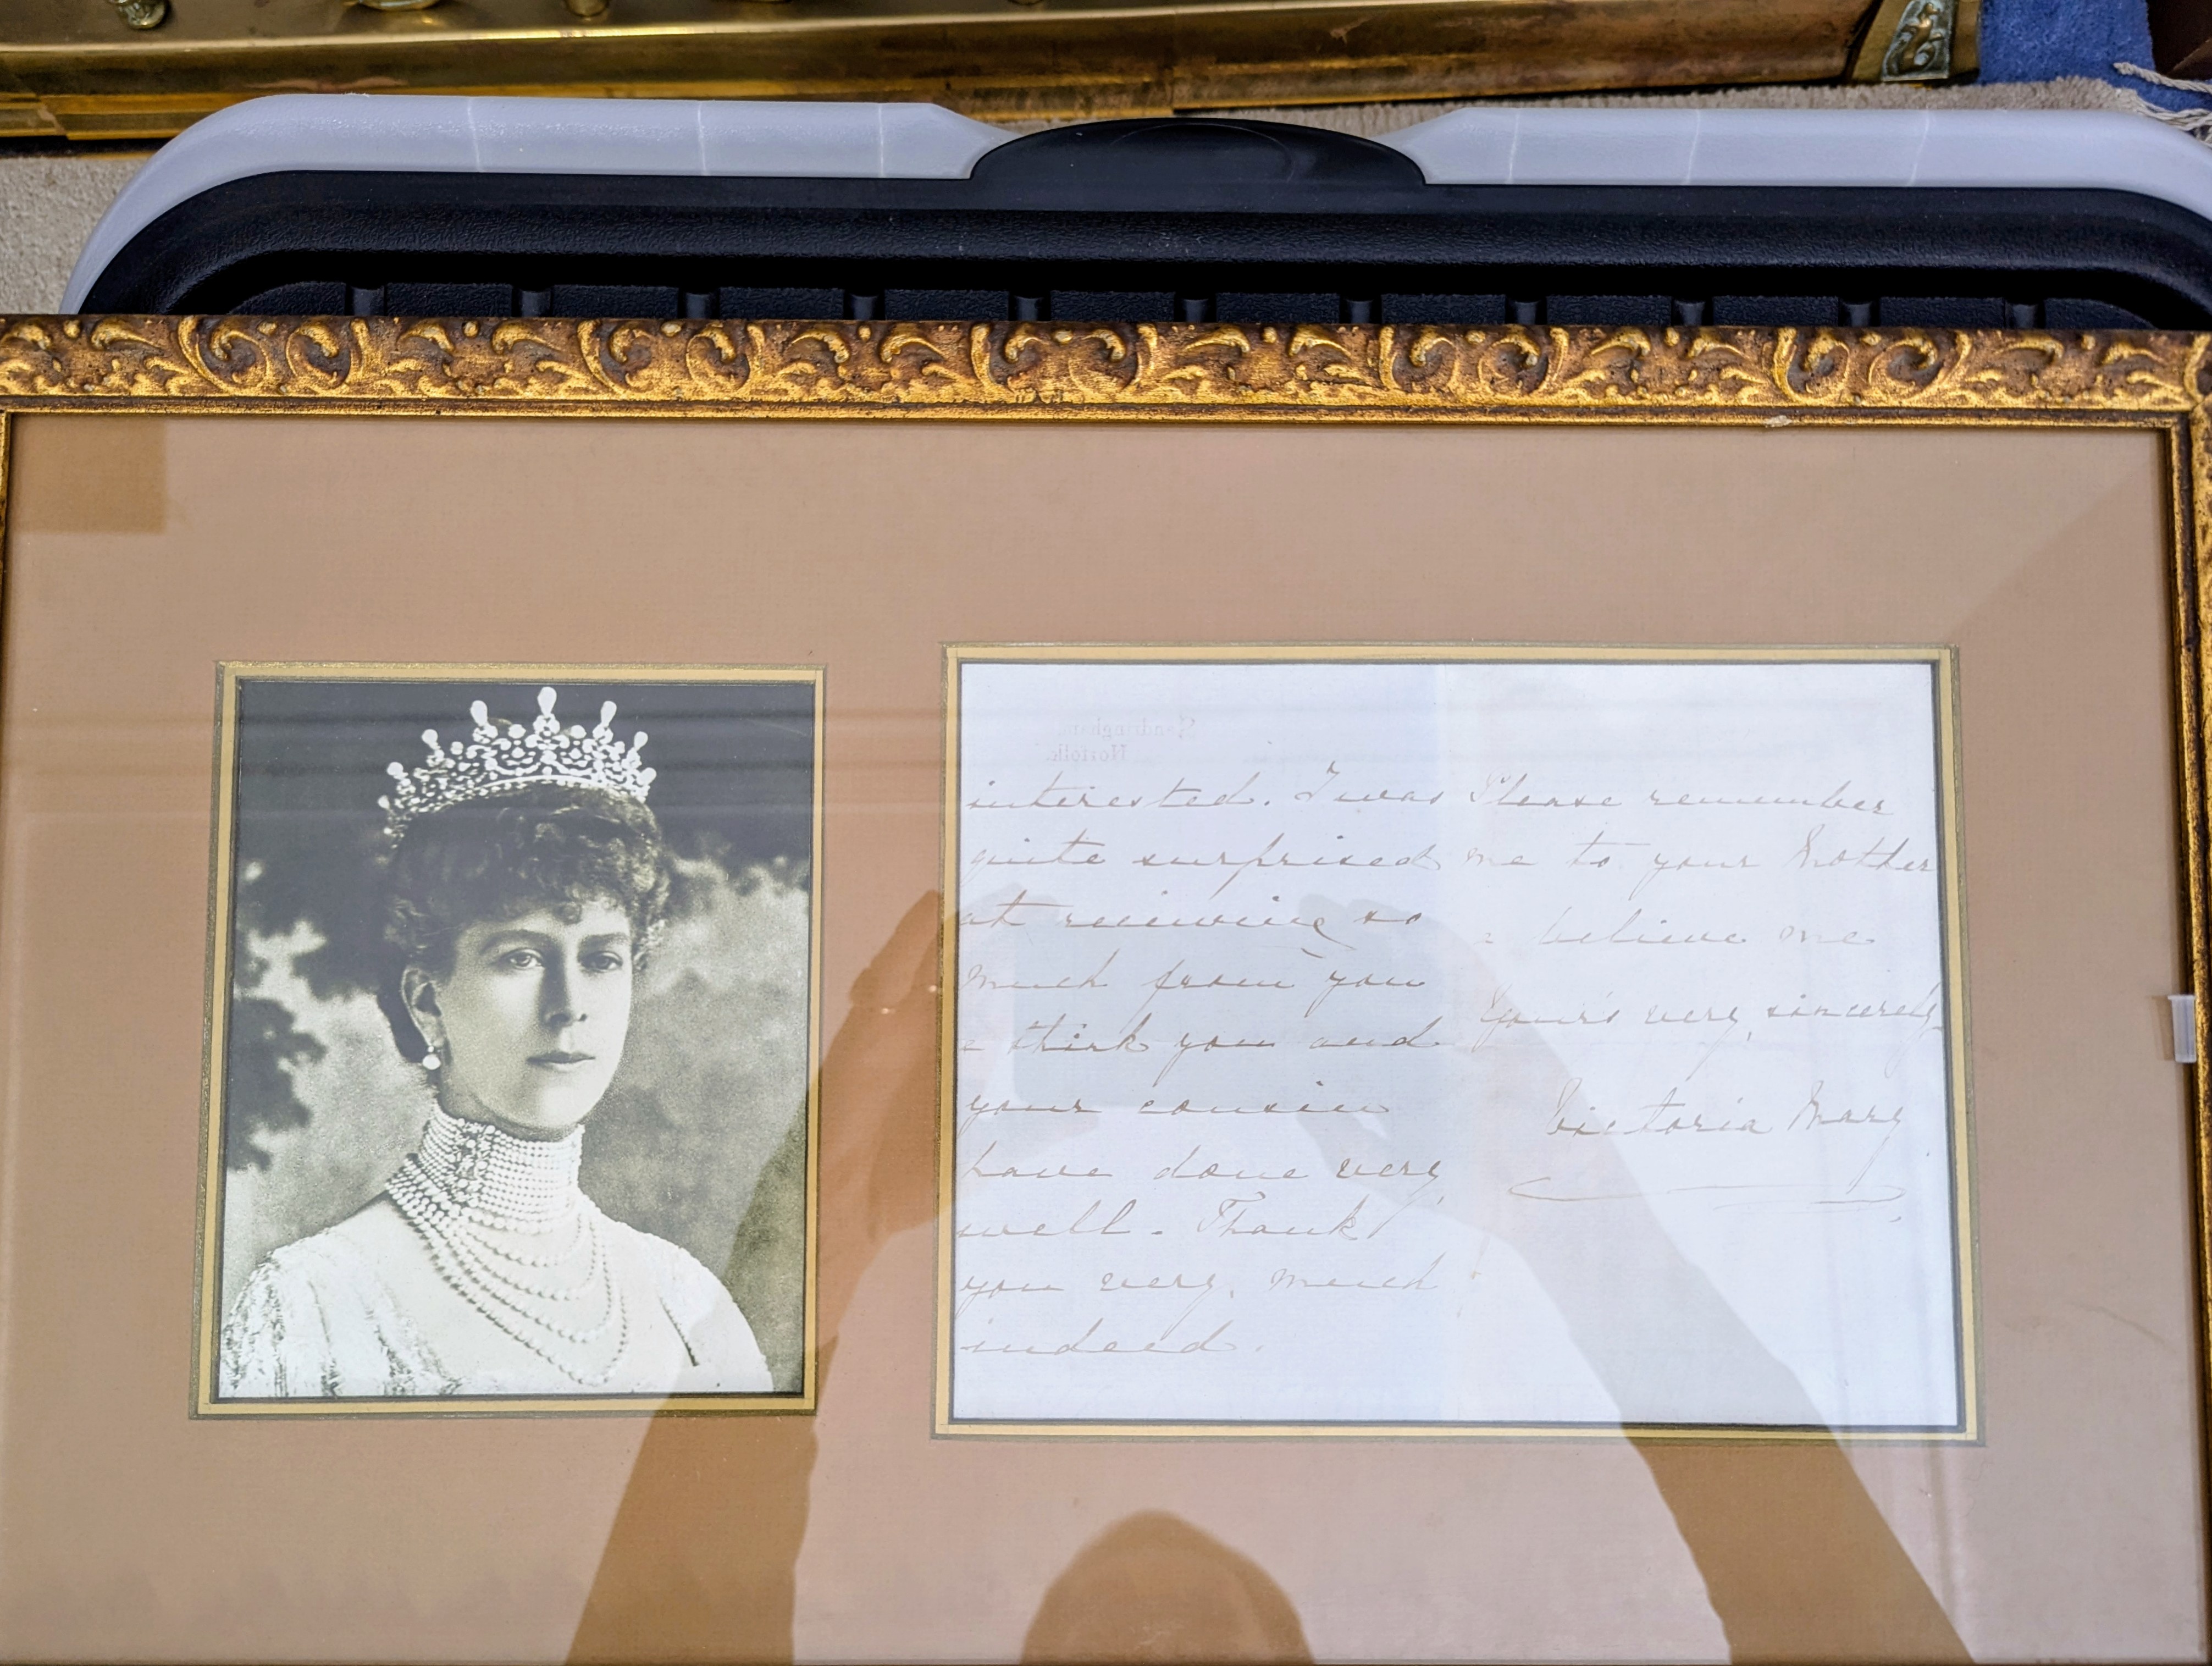 Sandringham
Norfolk.
interested. I was
quite surprised
at receiving so
much from you
& think you and
your cousin
have done very
well. Thank
you very much
indeed.
Please remember
me to your Mother
& believe me
Yours very sincerely
Victoria Mary